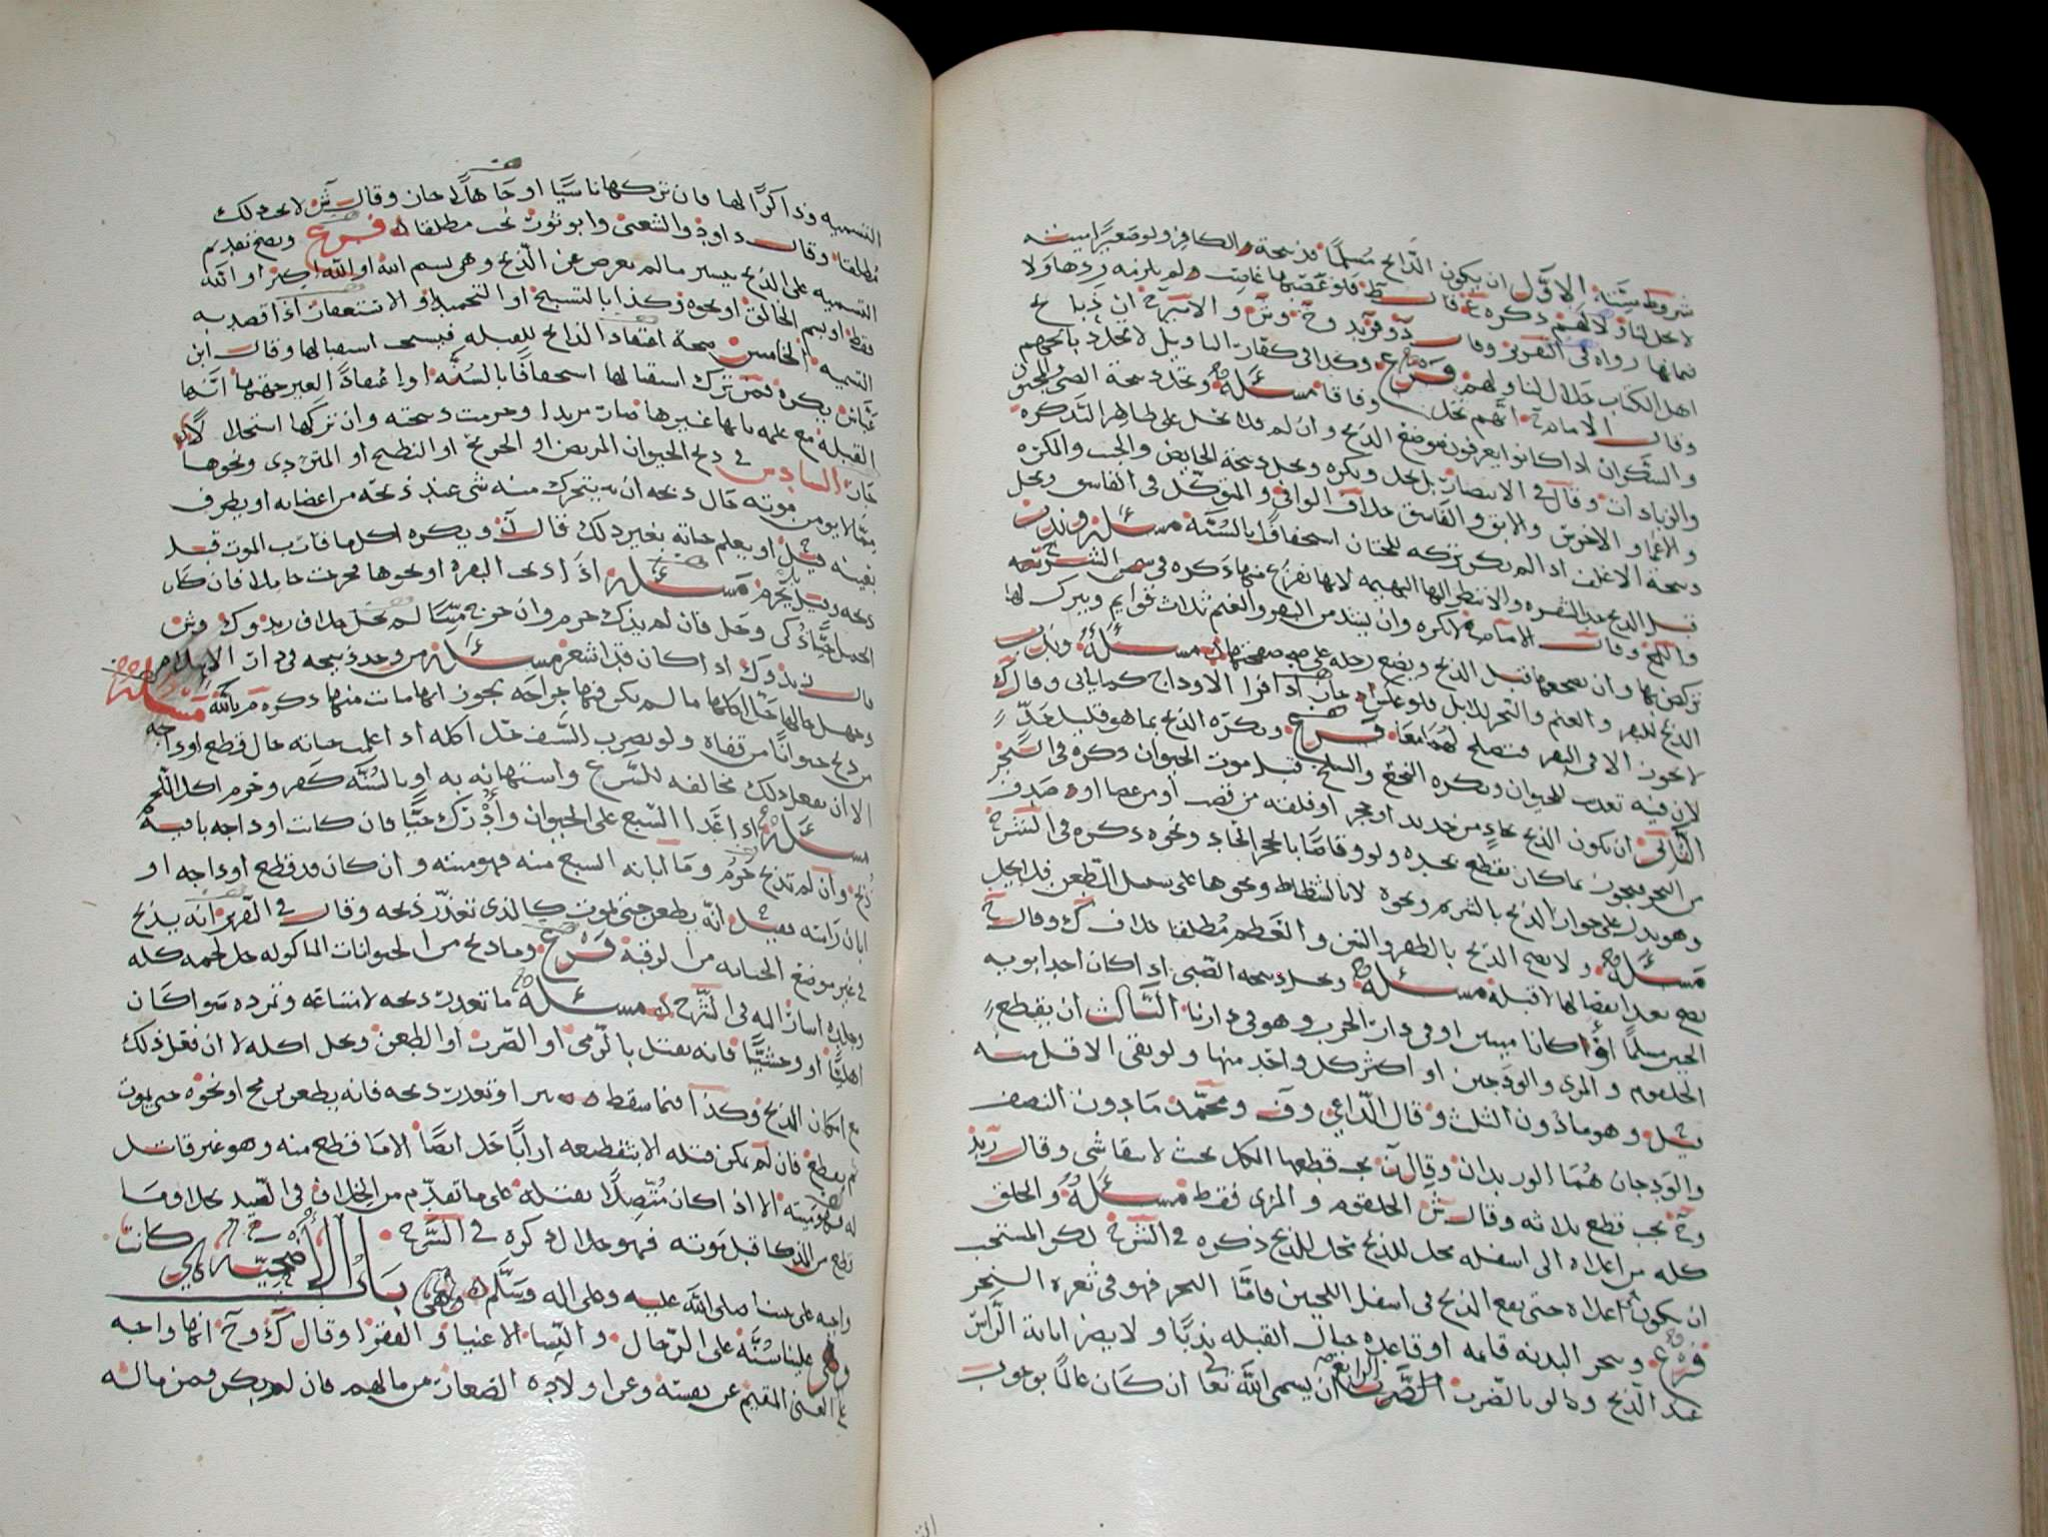 شروط ستة الاول ان يكون الذابح مسلما فذبيحة الكافر ولو صغيرا ميتة
لا تحل لنا ولا لهم ذكره قال ط فلو غصبها غاصب لم يلزمه ردها ولا
قيمتها رواه في التقرير وقال وزيد وح وش والاميرح ان ذبائح
اهل الكتاب حلال لنا ولهم فرع وكذا في كفار التاويل لا تحل ذبائحهم
وقال الامام انهم تحل وفاقا مسئلة وتحل ذبيحة الصبي والمجنون
والسكران اذا كانوا يعرفون موضع الذبح وان لم فلا تحل على ظاهر التذكرة
والزيادات وقال في الانتصار بل تحل وتكره وتحل ذبيحة الحايض والجنب والمكره
والاعمى والاخرس والابق والفاسق خلاف الوافي والمتوكل في الفاسق وتحل
ذبيحة الاغلف اذا لم يكن تركه للختان استخفافا بالسنة مسئلة وندب
قبل الذبح حد الشفرة ولا تنظر اليها البهيمة لانها تفزع منها ذكره في الشريعة
وقال الامام تكره وان يشد من البقر والغنم ثلاث قوايم ويترك لها
تركض بها وان يضجعها قبل الذبح ويضع رجله على صفحتها مسئلة وندب
الذبح للبقر والغنم والنحر للابل فلو عكس جاز اذا فرا الاوداج كما ياتي وقال ك
لا يجوز الا في البقر فتصلح لهما معا فرع وتكره الذبح بما هو قليل حد
لان فيه تعذيب للحيوان وتكره النخع والسلخ قبل موت الحيوان ذكره في البحر
الثاني ان يكون الذبح بحاد من حديد او حجر او فلقة من قصب او من عصا او صدف
من البحر فيجوز بما كان يقطع بحده ولو وقاصا بالحجر الحاد ونحوه ذكره في الشرح
وهو يدل على جواز الذبح بالشريم ونحوه لا بالشظاظ ونحوها على سبيل الطعن فلا يحل
مسئلة ولا يصح الذبح بالظفر والسن والعظم مطلقا خلاف ك وقال ح
يصح بعد انفصالها لا قبله مسئلة وتحل ذبيحة الصبي اذا كان احد ابويه
مسلما او كانا ميتين او في دار الحرب وهو في دارنا الثالث ان يقطع
الحلقوم والمري والودجين او اكثر كل واحد منها ولو بقي الاقل منه
قيل وهو ما دون الثلث وقال الداعي وف ومحمد ما دون النصف
والودجان هما الوريدان وقال ن يجب قطعها الكل بحيث لا يبقا شي وقال زيد
وح يجب قطع ثلاثه وقال ش الحلقوم والمري فقط مسئلة والحلق
كله من اعلاه الى اسفله محل للذبح ذكره في الشرح لكن المستحب
ان يكون اعلاه حتى يقع الذبح في اسفل اللحيين فاما النحر فهو في ثغرة النحر
فرع وينحر البدنه قايمة او قاعدة حيال القبلة ندبا ولا يضر ابانة الراس
عند الذبح ولو بالضرب الرابع ان يسمي الله تعا ان كان عالما بوجوب
التسميه وذاكرا لها فان تركها ناسيا او جاهلا جاز وقال ش لا يجب ذلك
مطلقا وقال داود والشعبي وابو ثور تجب مطلقا فرع ويصح تقديم
التسميه على الذبح بيسير ما لم يعرض عن الذبح وهي بسم الله او الله اكبر او الله
فقط او بسم الخالق او نحوه وكذا بالتسبيح او التحميد او الاستغفار اذا قصد به
التسمية الخامس صحة اعتقاد الذابح للقبلة فيستحب استقبالها وقال ابن
عباس يكره فمن ترك استقبالها استخفافا بالسنة او اعتقادا لغير حقيتها انها
القبلة مع علمه بانها غيرها صار مرتدا وحرمت ذبيحته وان تركها استحلالا
جاز السادس في ذبح الحيوان المريض او الجريح او النطيح او المتردي ونحوها
مما لا يومن موته حال ذبحه ان يتحرك منه شي عند ذبحه من اعضايه او يطرف
بعينه قيل او يعلم حياته بغير ذلك قال ن ويكره اكل ما قارب الموت قبل
ذبحه وقيل يحرم مسئلة اذا ذبحت البقرة او نحوها فخرجت حاملا فان كان
الحمل حيا ذكي وحل فان لم يذك حرم وان خرج ميتا لم يحل خلاف زيد وك وش
قالـ اذا كان قد اشعر مسئلة من وجد ذبيحه في دار الاسلام
وجهل حالها حل اكلها ما لم يكن فيها جراحة يجوز انها ماتت منها ذكره م بالله مسئلة
من ذبح حيوانا من قفاه ولو بضرب السيف حل اكله اذا علمت حياته حال قطع اوداجه
الا ان يفعل ذلك مخالفه للشرع واستهانه به او بالسنة كفر وحرم اكل اللحم
مسئلة اذا عدا السبع على الحيوان وادرك حيا فان كانت اوداجه باقية
ذبح وان لم تذبح حرم وما ابانه السبع منه فهو ميتة وان كان قد قطع اوداجه او
ابان راسه فقيل انه يطعن حتى يموت كالذي تعذر ذبحه وقال في التقرير انه يذبح
في غير موضع الجنايه من الرقبة فرع وما ذبح من الحيوانات الماكوله حل لحمه كله
وجلده اشار اليه في الشرح مسئلة ما تعذر ذبحه لامتناعه وتمرده سوا كان
اهليا او وحشيا فانه يقتل بالرمي او الضرب او الطعن وتحل اكله لا ان فعل ذلك
مع امكان الذبح وكذا فيما سقط في بير او تعذر ذبحه فانه يطعن برمح او نحوه حتى يموت
ثم يقطع فان لم يمكن قتله الا بتقطيعه ارابا حل ايضا الا ما قطع منه وهو غير قاتل
له فهو ميتة الا اذا كان متصلا بقتله على ما تقدم من الخلاف في الصيد
وقع من المذكا قبل موته فهو حلال ذكره في الشرح باب الأضحية هي كانت
واجبه على نبينا صلى الله عليه وعلى اله وسلم وهي
وهي علينا سنة على الرجال والنسا الاغنيا والفقرا وقال ك وح انها واجبه
على الغني المقيم عن نفسه وعن اولاده الصغار من مالهم فان لم يكن فمن ماله